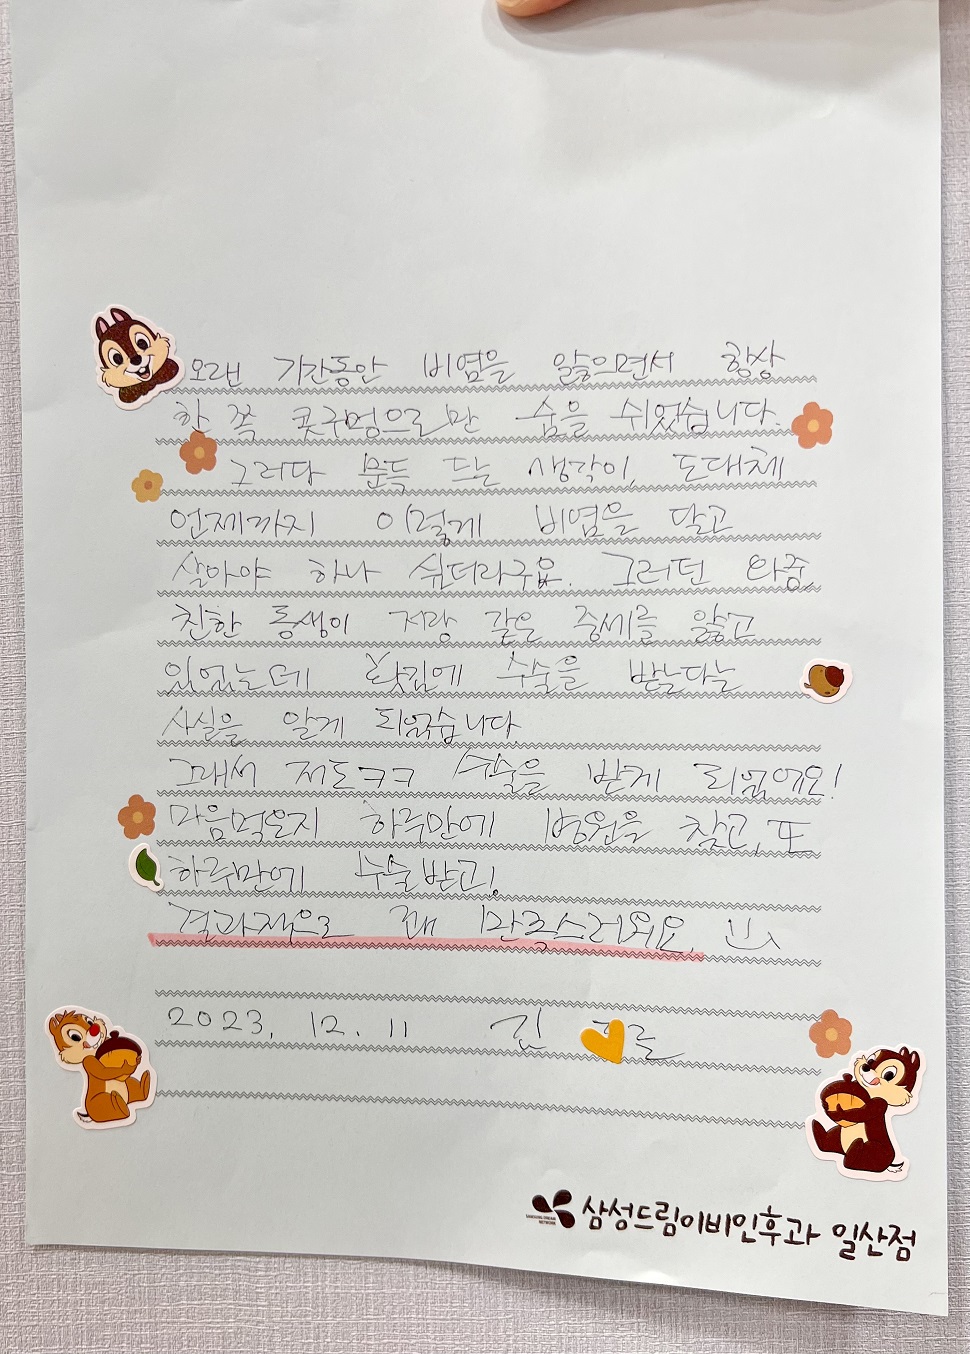 오랜 기간동안 비염을 앓으면서 항상
한 쪽 콧구멍으로만 숨을 쉬었습니다.
그러다 문득 드는 생각이, 도대체
언제까지 이렇게 비염을 달고
살아야 하나 싶더라구요. 그러던 와중
친한 동생이 저랑 같은 증세를 앓고
있었는데 확김에 수술을 받는다는
사실을 알게 되었습니다.
그래서 저도ㅋㅋ 수술을 받게 되었어요!
마음먹은지 하루만에 병원을 찾고, 또
하루만에 수술받고!
결과적으로 꽤 만족스러워요.
2023. 12. 11 김
SAMSUNG DREAM
NETWORK
삼성드림이비인후과 일산점